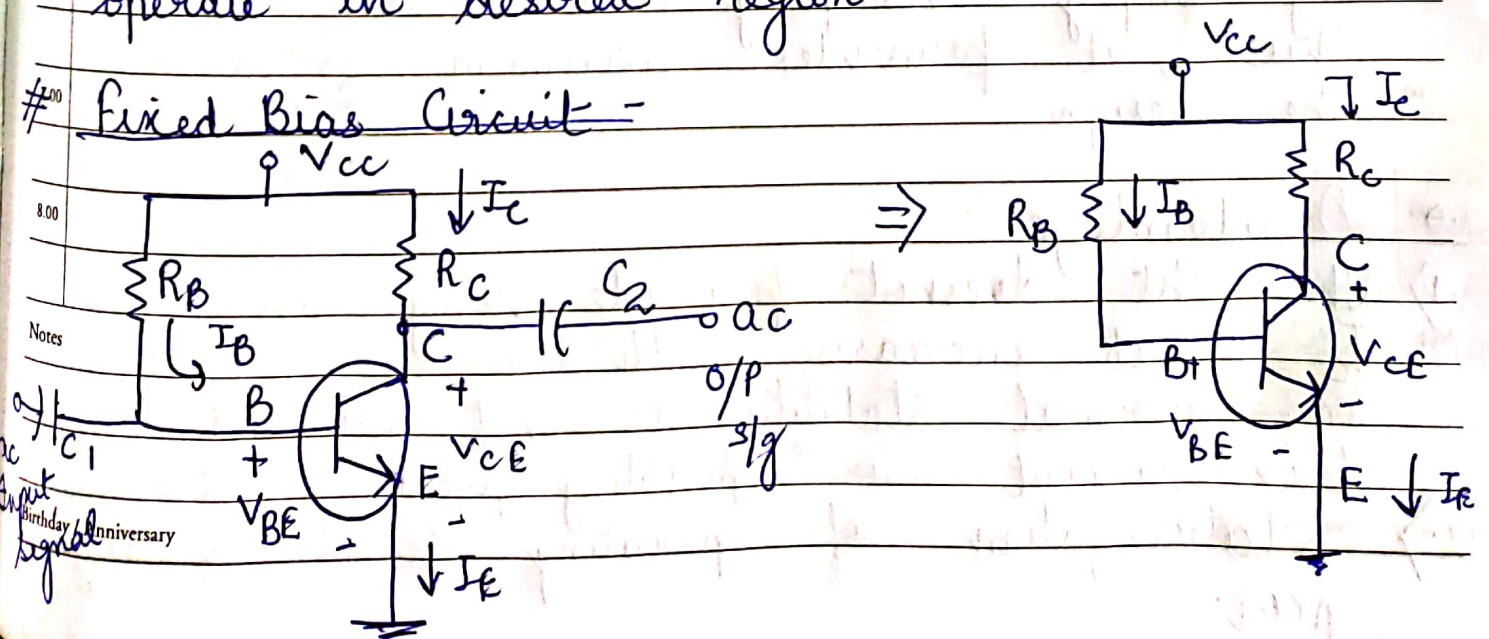 operate in desired region
# Fixed Bias Circuit -
7.00
8.00
Notes
Birthday / Anniversary
VCC
IC
RB
RC
IB
C2
ac
O/P
s/g
C
+
VCE
-
B
+
VBE
-
E
IE
C1
ac
Input
signal
⇒
VCC
IC
RC
RB
IB
C
+
VCE
-
B+
VBE -
E
IE